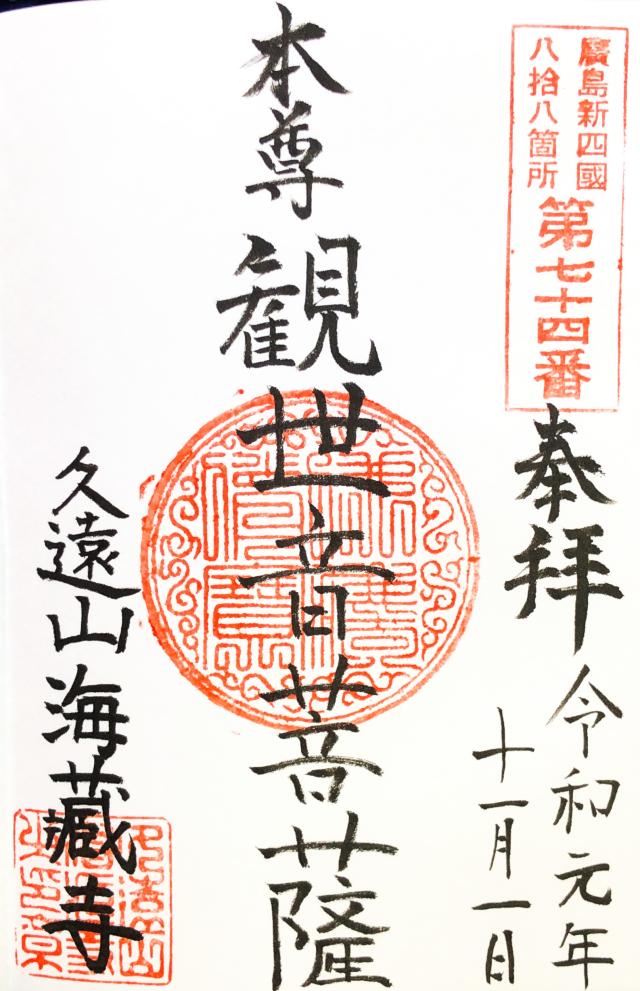 廣島新四國
八拾八箇所
第七十四番
奉拝
令和元年
十一月一日
本尊 観世音菩薩
久遠山海蔵寺